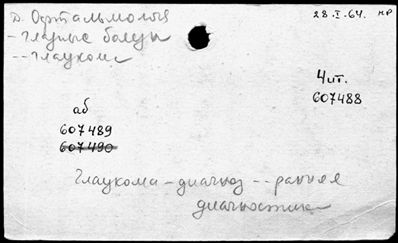 д. Офтальмология
28.I.64. нр
- Глазные болезн
-- глауком
Чит.
607488
аб
607489
607490
Глаукома - диагноз -- ранняя
диагностика